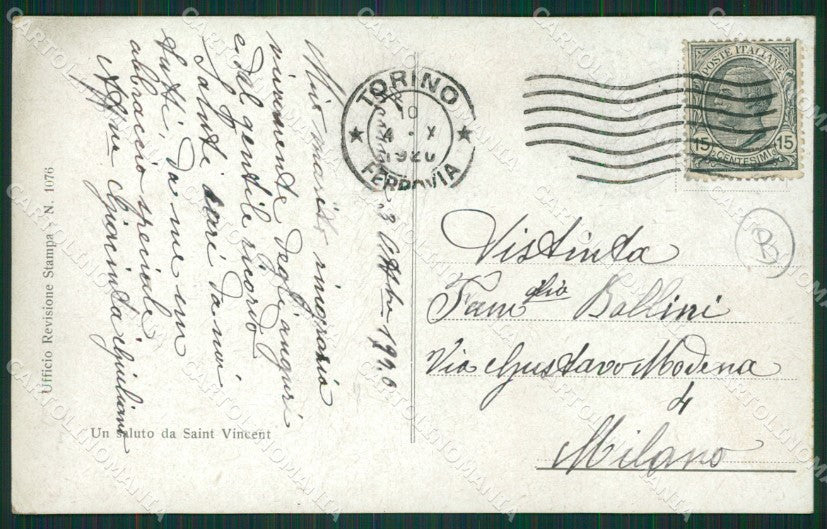 Ufficio Revisione Stampa - N. 1076
Un saluto da Saint Vincent
3 1920
Mio marito ringrazia
vivamente degli auguri
e del gentile ricordo.
Saluti cari da noi
tutti, da me un
abbraccio speciale
Giacinta Giuliani
TORINO
10
4 - X
1920
FERROVIA
POSTE ITALIANE
15 CENTESIMI 15
B
Distinta
Famiglia Ballini
Via Gustavo Modena
4
Milano
CARTOLINOMANIA